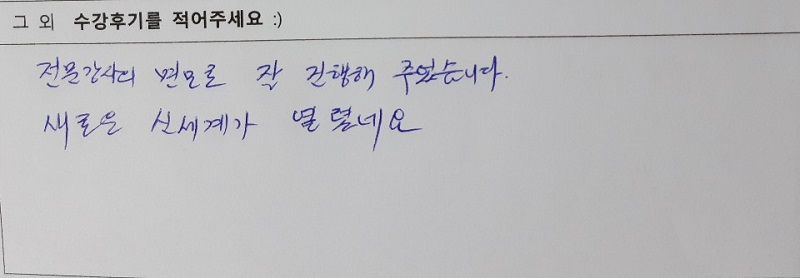 그 외 수강후기를 적어주세요 :)
전문강사의 면모로 잘 진행해 주었습니다.
새로운 신세계가 열렸네요